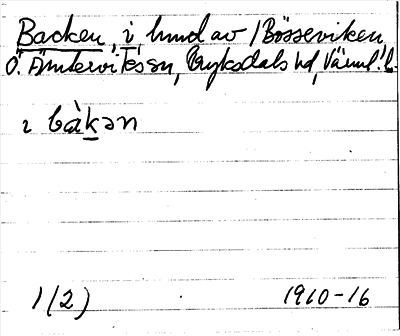 Backen, i hmd av /Bösseviken,
Ö. Ämtervik sn, Fryksdals hd, Värml. l.
ı bàkən
1(2) 1910-16